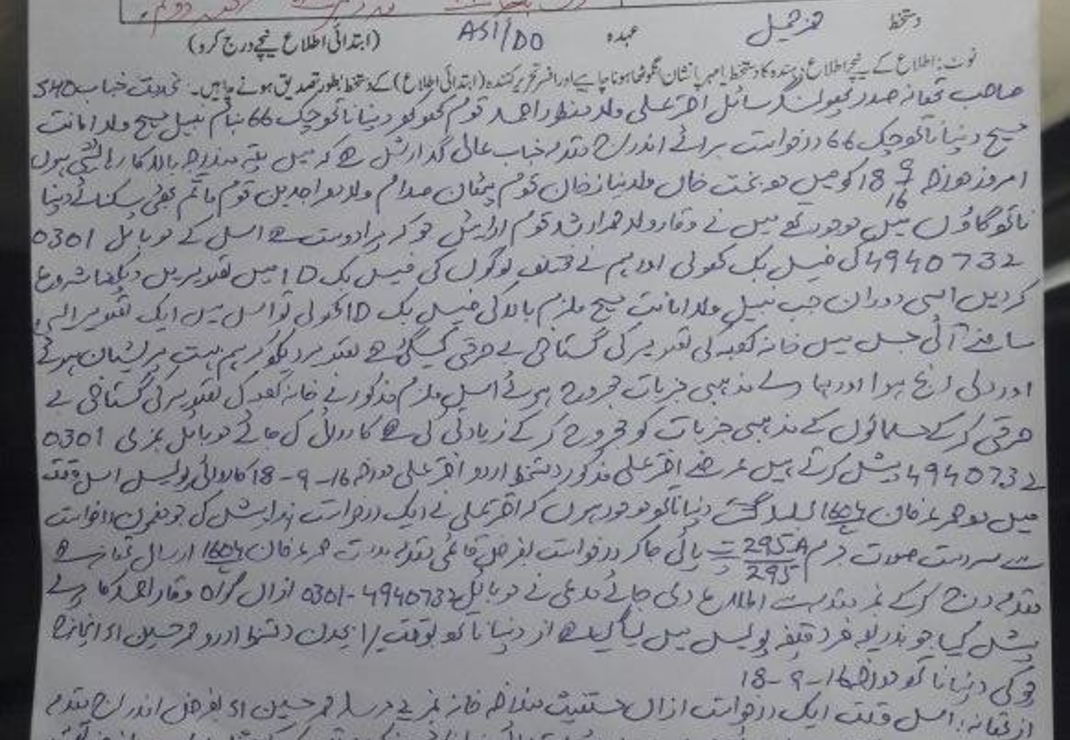 دستخط مزمل عہدہ ASI/DO (ابتدائی اطلاع نیچے درج کرو)
نوٹ: اطلاع کے نیچے اطلاع دہندہ کا دستخط یا مہر یا نشان انگوٹھا ہونا چاہیے اور افسر تحریر کنندہ (ابتدائی اطلاع) کے دستخط بطور تصدیق ہونے چاہیں۔ بخدمت جناب SHO
صاحب تھانہ صدر پھولنگر سائل اختر علی ولد منظور احمد قوم کھوکھر دینا ناتھ چک 66 بنام نبیل مسیح ولد امانت
مسیح دینا ناتھ چک 66 درخواست برائے اندراج مقدمہ جناب عالی گذارش ہے کہ میں پتہ مندرجہ بالا کا رہائشی ہوں
امروز مورخہ 18 9/16 کو میں بخت خان ولد نیاز خان قوم پٹھان صدام ولد قوم سکنائے دینا
ناتھ گاؤں میں موجود تھے میں نے وقار ولد محمد ارشد قوم ارائیں جو کہ میرا دوست ہے اس کے موبائل 0301
4940732 کی فیس بک کھولی اور ہم نے مختلف لوگوں کی فیس بک ID میں تصویریں دیکھنا شروع
کر دیں اسی دوران جب نبیل ولد امانت مسیح ملزم بالا کی فیس بک ID کھولی تو اس میں ایک تصویر ایسی
سامنے آئی جس میں خانہ کعبہ کی تصویر کی گستاخی بے حرمتی کی گئی ہے تصویر دیکھ کر ہم بہت پریشان ہوئے
اور دلی رنج ہوا اور ہمارے مذہبی جذبات مجروح ہوئے اس ملزم مذکور نے خانہ کعبہ کی تصویر کی گستاخی بے
حرمتی کر کے مسلمانوں کے مذہبی جذبات کو مجروح کر کے زیادتی کی ہے کاروائی کی جائے موبائل نمبری 0301
4940732 پیش کرتے ہیں عرضے اختر علی مذکور دستخط اردو اختر علی مورخہ 18-9-16 کاروائی پولیس اس وقت
میں محمد عرفان 1604 بسلسلہ گشت دینا ناتھ موجود ہوں کہ اختر علی نے ایک درخواست پیش کی جو مضمون درخواست
سے سردست صورت جرم 295-A/295 ت پ پائی جا کر درخواست بغرض قائمی مقدمہ بدست محمد عرفان 1604 ارسال تھانہ ہے
مقدمہ درج کر کے نمبر مقدمہ سے اطلاع دی جائے مدعی نے موبائل 4940732-0301 ازاں وقار احمد کا
پیش کیا جو بذریعہ فرد قبضہ پولیس میں لیا گیا ہے از دینا ناتھ بوقت دستخط اردو محمد حسین انچارج
چوکی دینا ناتھ مورخہ 18-9-16
از تھانہ: اس وقت ایک درخواست ازاں مستغیث محمد حسین بغرض اندراج مقدمہ